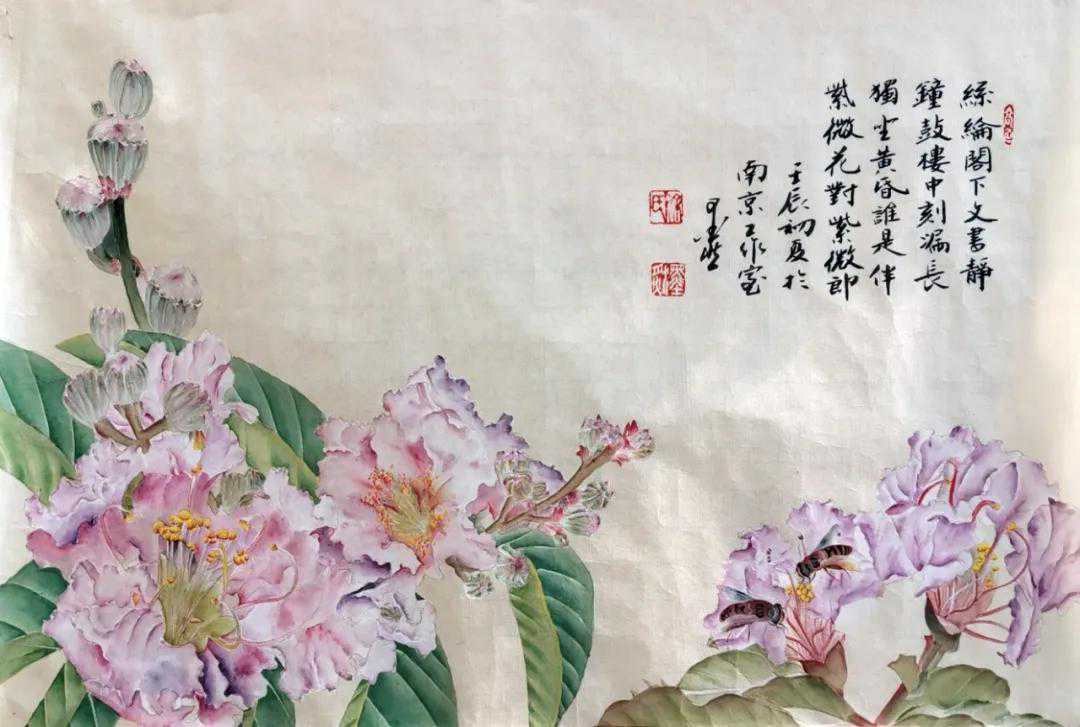 絲綸閣下文書靜
鐘鼓樓中刻漏長
獨坐黃昏誰是伴
紫微花對紫微郎
壬辰初夏於
南京工作室